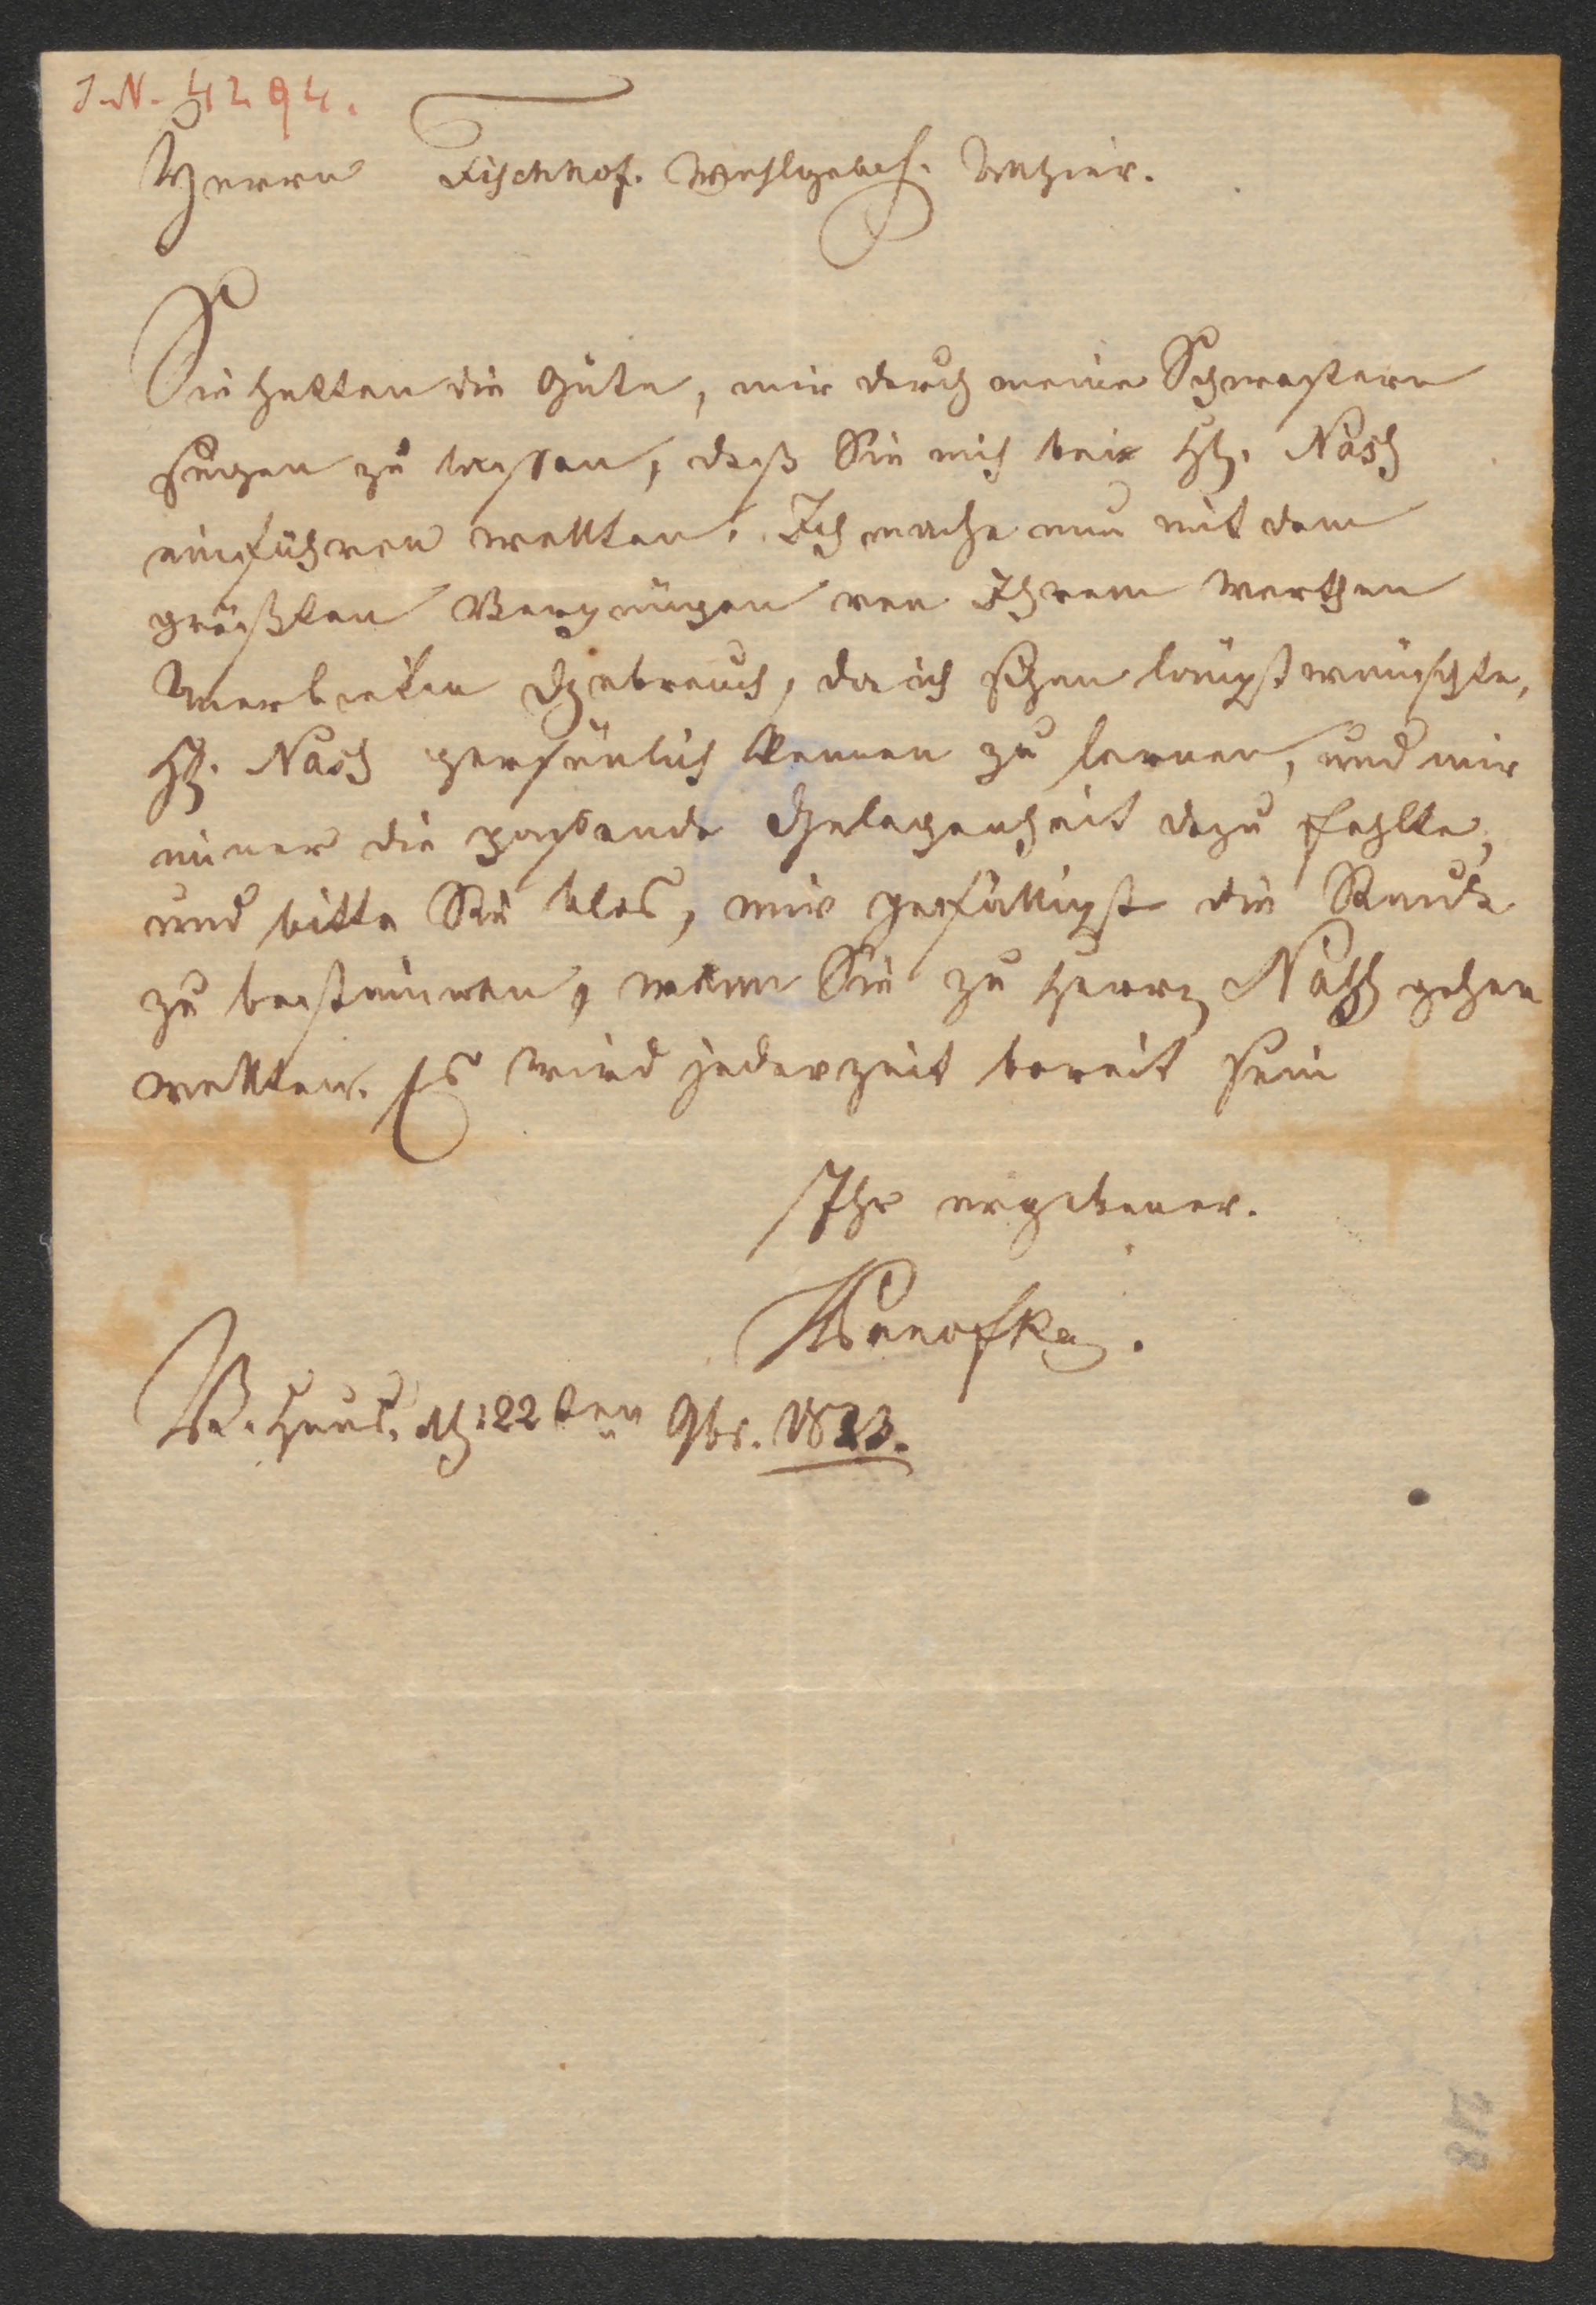 I.N. 4294.
Herrn Fischhof. Wohlgeb. Allhier.
Sie hatten die Güte, mir durch meine Schwestern
sagen zu lassen, daß Sie mich bei H. Nash
einführen wollten. Ich mache nun mit dem
größten Vergnügen von Ihrem werthen
Anerbieten Gebrauch, da ich schon längst wünschte,
H. Nash persönlich kennen zu lernen, und mir
immer die passende Gelegenheit dazu fehlte,
und bitte Sie blos, mir gefälligst die Stunde
zu bestimmen, wann Sie zu Herrn Nash gehen
wollten. Es wird jederzeit bereit sein
Ihr ergebener.
Panofka.
V. Haus. d. 22ten 9br. 1823.
218